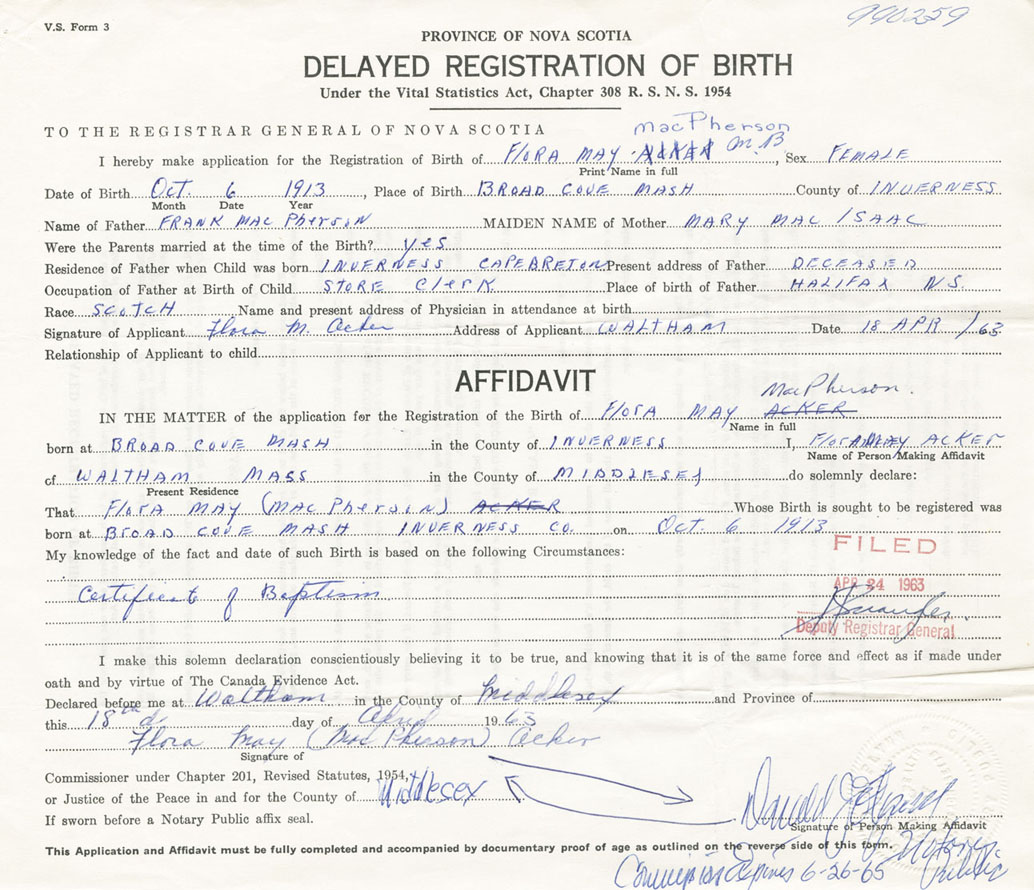 V.S. Form 3
990259
PROVINCE OF NOVA SCOTIA
DELAYED REGISTRATION OF BIRTH
Under the Vital Statistics Act, Chapter 308 R. S. N. S. 1954
TO THE REGISTRAR GENERAL OF NOVA SCOTIA
MacPherson
I hereby make application for the Registration of Birth of FLORA MAY ACKER M.B, Sex FEMALE
Print Name in full
Date of Birth Oct. 6 1913, Place of Birth BROAD COVE MASH County of INVERNESS
Month Date Year
Name of Father FRANK MAC PhersoN MAIDEN NAME of Mother MARY MAC ISAAC
Were the Parents married at the time of the Birth? yes
Residence of Father when Child was born INVERNESS CAPEBRETON Present address of Father DECEASED
Occupation of Father at Birth of Child STORE ClerK Place of birth of Father HALIFAX N.S.
Race SCOTCH Name and present address of Physician in attendance at birth
Signature of Applicant Flora M. Acker Address of Applicant WALTHAM Date 18 APR /63
Relationship of Applicant to child
AFFIDAVIT
MacPherson.
IN THE MATTER of the application for the Registration of the Birth of FLORA MAY ACKER
Name in full
born at BROAD COVE MASH in the County of INVERNESS I, FLORA MAY ACKER
Name of Person Making Affidavit
of WALTHAM MASS in the County of MIDDLESEX do solemnly declare:
Present Residence
That FLORA MAY (MAC PhersoN) ACKER Whose Birth is sought to be registered was
born at BROAD COVE MASH INVERNESS CO. on Oct. 6 1913
My knowledge of the fact and date of such Birth is based on the following Circumstances:
FILED
Certificat of Baptism
APR 24 1963
Deputy Registrar General
I make this solemn declaration conscientiously believing it to be true, and knowing that it is of the same force and effect as if made under
oath and by virtue of The Canada Evidence Act.
Declared before me at Waltham in the County of Middlesex and Province of
this 18th d. day of April 1963
Flora May (MacPherson) Acker
Signature of
Commissioner under Chapter 201, Revised Statutes, 1954,
or Justice of the Peace in and for the County of Middlesex
If sworn before a Notary Public affix seal.
Donald J.
Signature of Person Making Affidavit
This Application and Affidavit must be fully completed and accompanied by documentary proof of age as outlined on the reverse side of this form.
Notary Public
Commission Expires 6-26-65